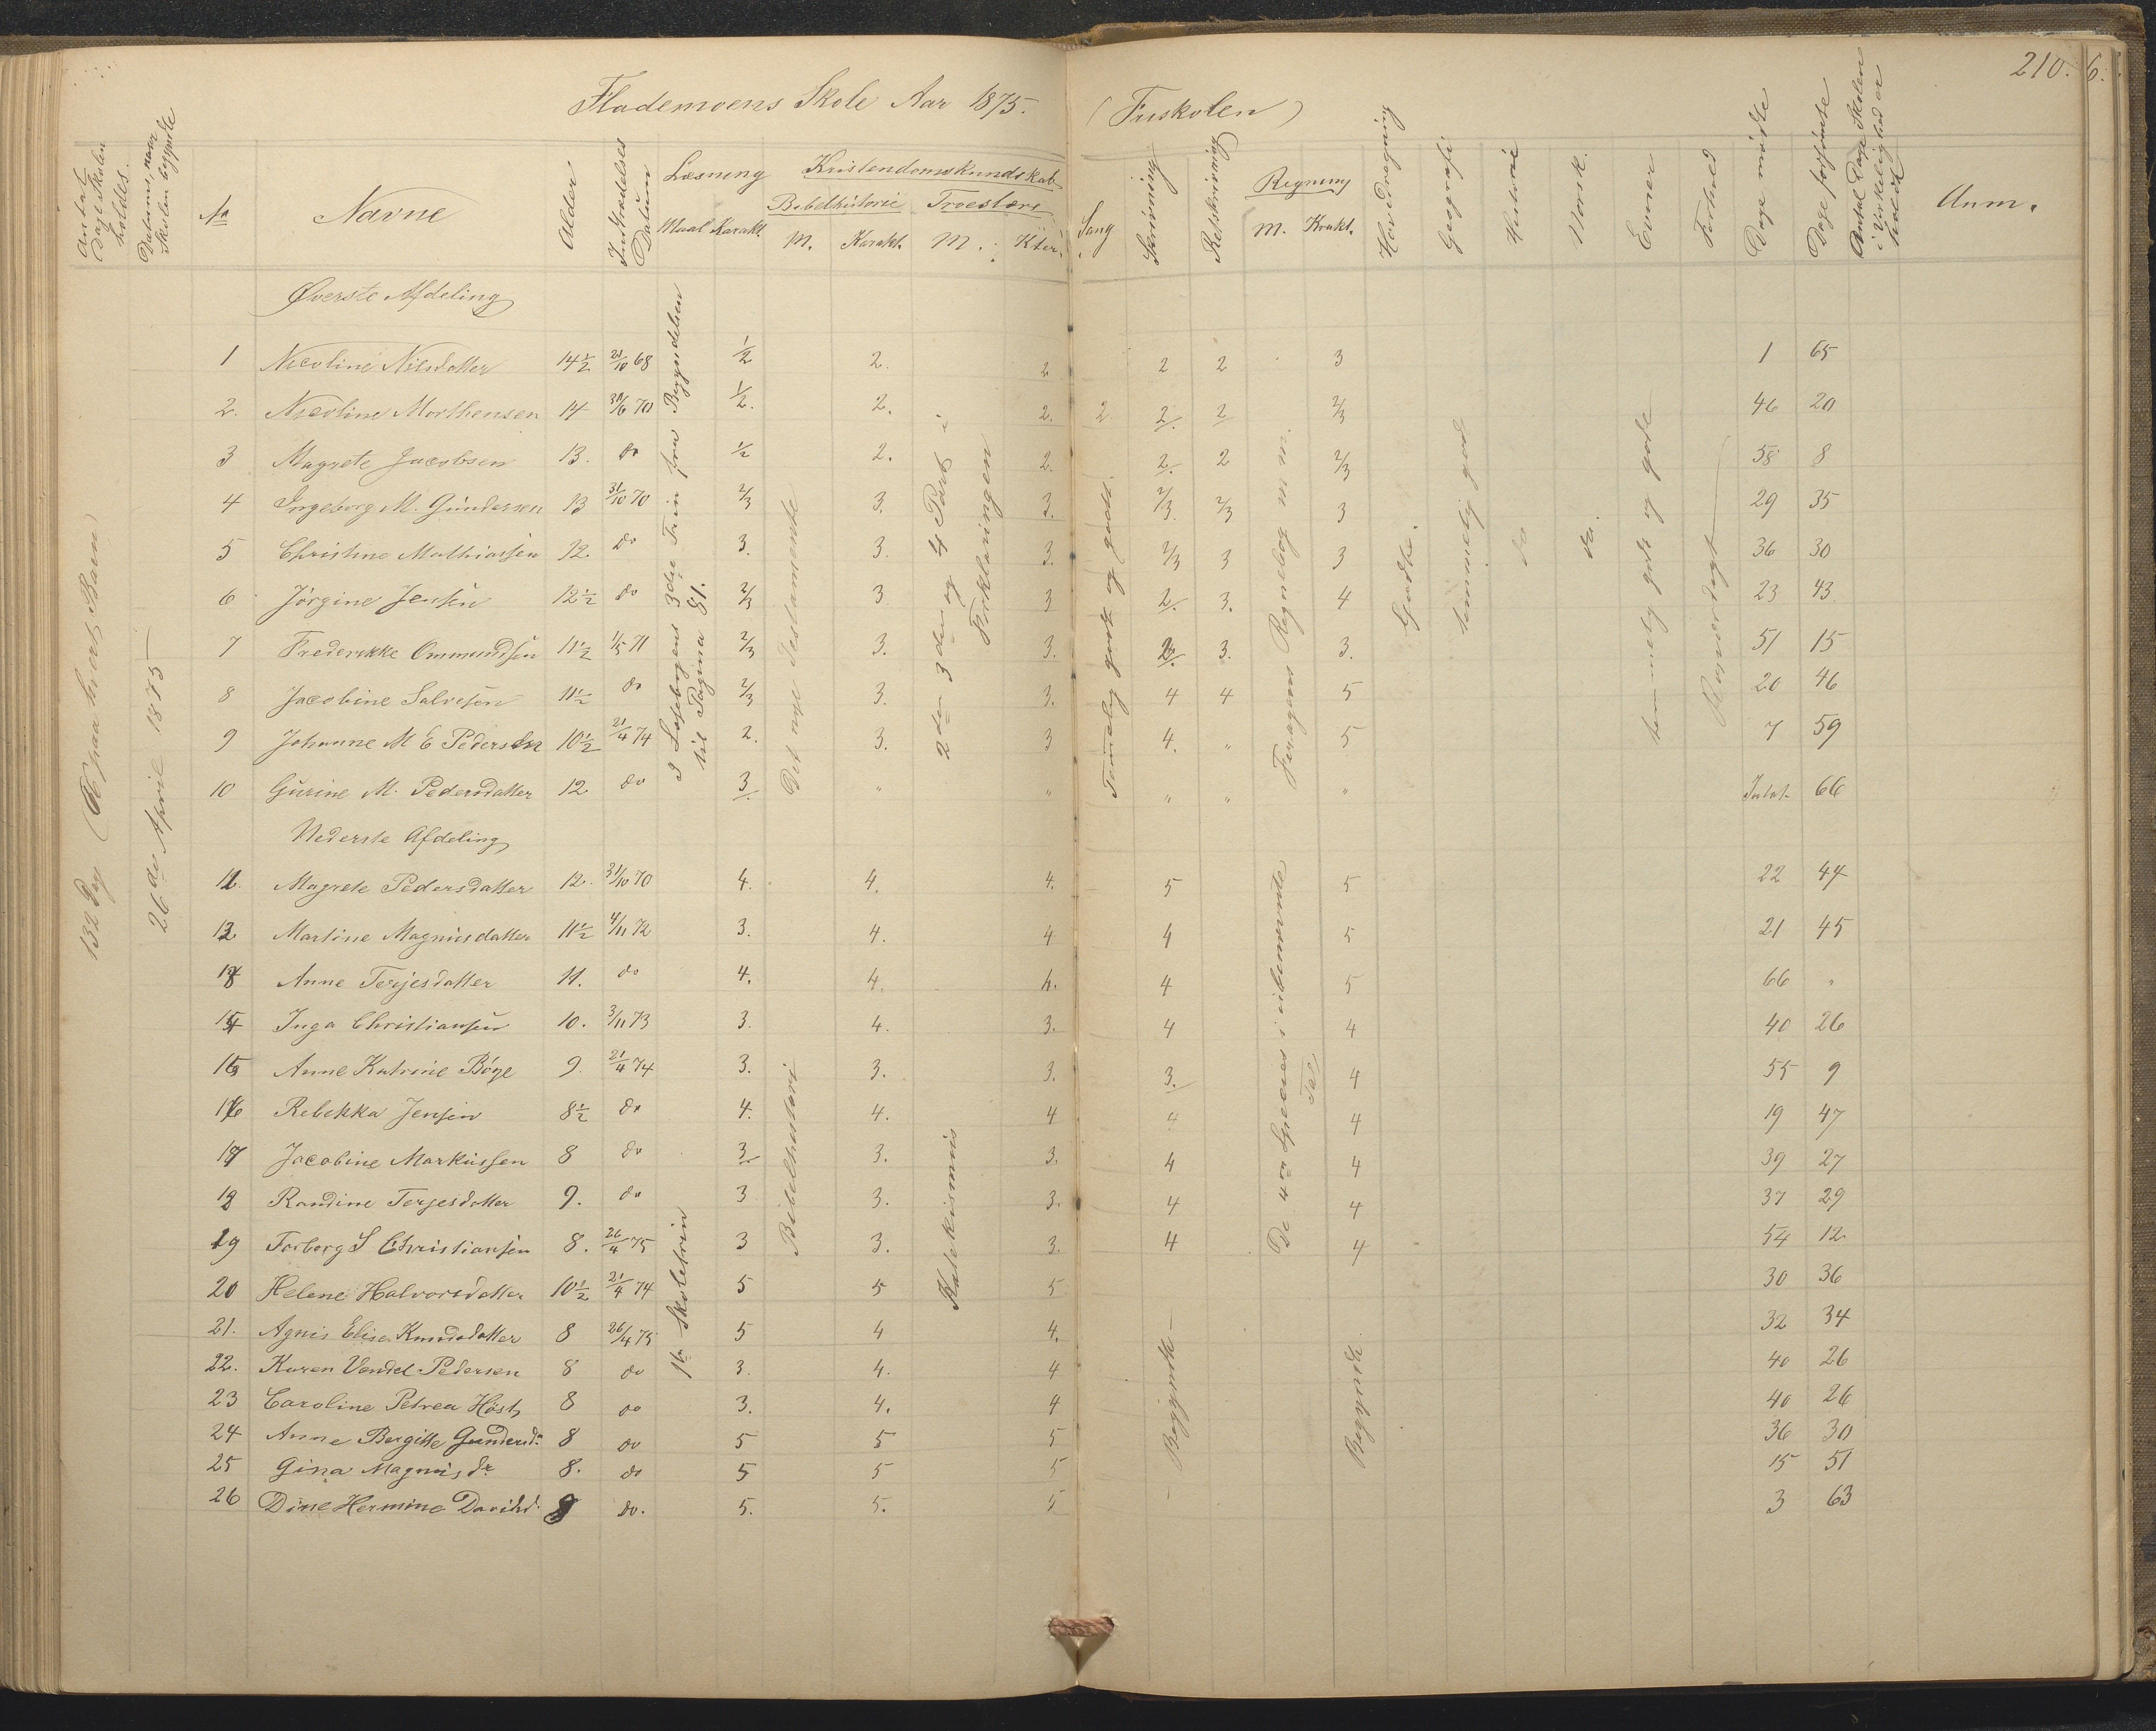 210. 6.
Flademoens Skole Aar 1875. (Friskolen)
Antal Dage Skolen holdes. Datum, naar Skolen begyndte No Navne Alder Indtrædelses Datum Læsning Maal Karakt. Kristendomskundskab Bibelhistorie M. Karakt. Troeslære M. Kter. Sang Skrivning Retskrivning Regning M. Krakt. Hovedregning Geografi Historie Norsk. Evner Forhold Dage mødte Dage forsømte Antal Dage Skolen i Virkelighed er holdt Anm.
132 Dag (66 paa hvert Barn)
26de April 1875
Øverste Afdeling
I Læsebogens 3die Trin fra Begyndelsen til Pagina 81.
Det nye Testamente
2den 3den og 4 Part i Forklaringen
Temmelig godt og godt.
Faragers Regnebog m m.
Godt.
temmelig god
do
do.
temmelig gode og gode
Rosværdigt
1 Nicoline Nilsdatter 14½ 21/10 68 ½ 2. 2 2 2 3 1 65
2. Nicoline Morthensen 14 30/6 70 ½. 2. 2. 2 2. 2 2/3 46 20
3 Magrete Jacobsen 13. do ½ 2. 2. 2. 2 2/3 58 8
4 Ingeborg M. Gundersen 13 31/10 70 2/3 3. 3. 2/3. 2/3 3 29 35
5 Christine Mathiassen 12. do 3. 3. 3. 2/3 3 3 36 30
6 Jørgine Jensen 12½ do 2/3 3 3 2. 3. 4 23 43
7 Frederikke Ommundsen 11½ 1/5 71 2/3 3. 3. 2. 3. 3. 51 15
8 Jacobine Salvesen 11½ do 2/3 3. 3. 4 4 5 20 46
9 Johanne M E Pedersen 10½ 21/4 74 2. 3. 3 4. " 5 7 59
10 Gurine M. Pedersdatter 12 do 3 " " " " " 66
Nederste Afdeling
1ste Skoletrin
Bibelhistori
Katekismus
De 4re Species i ubenævnte Tal
11. Magrete Pedersdatter 12. 31/10 70 4. 4. 4. 5 5 22 44
12 Martine Magnusdatter 11½ 4/11 72 3. 4. 4 4 5 21 45
13 Anne Terjesdatter 11. do 4. 4. 4. 4 5 66 "
14 Inga Christiansen 10. 3/11 73 3. 4. 3. 4 4 40 26
15 Anne Katrine Böye 9. 21/4 74 3. 3. 3. 3. 4 55 9
16 Rebekka Jensen 8½ do 4. 4. 4 4 4 19 47
17 Jacobine Markussen 8 do 3 3. 3. 4 4 39 27
18 Randine Terjesdatter 9. do 3 3. 3. 4 4 37 29
19 Torborg S Christiansen 8. 26/4 75 3 3. 3. 4 4 54 12
20 Helene Halvorsdatter 10½ 21/4 74 5 5 5 30 36
21. Agnis Elise Knudsdatter 8 26/4 75 5 4 4. 32 34
22. Karen Vendel Pedersen 8 do 3. 4. 4 40 26
23 Caroline Petrea Höst 8 do 3. 4. 4 40 26
24 Anne Bergitte Gundersd. 8 do 5 5 5 36 30
25 Gina Magnusdr 8. do 5 5 5 15 51
26 Dine Hermine Davidsd. 8 do. 5. 5. 5 3 63
Begyndt
Begyndt